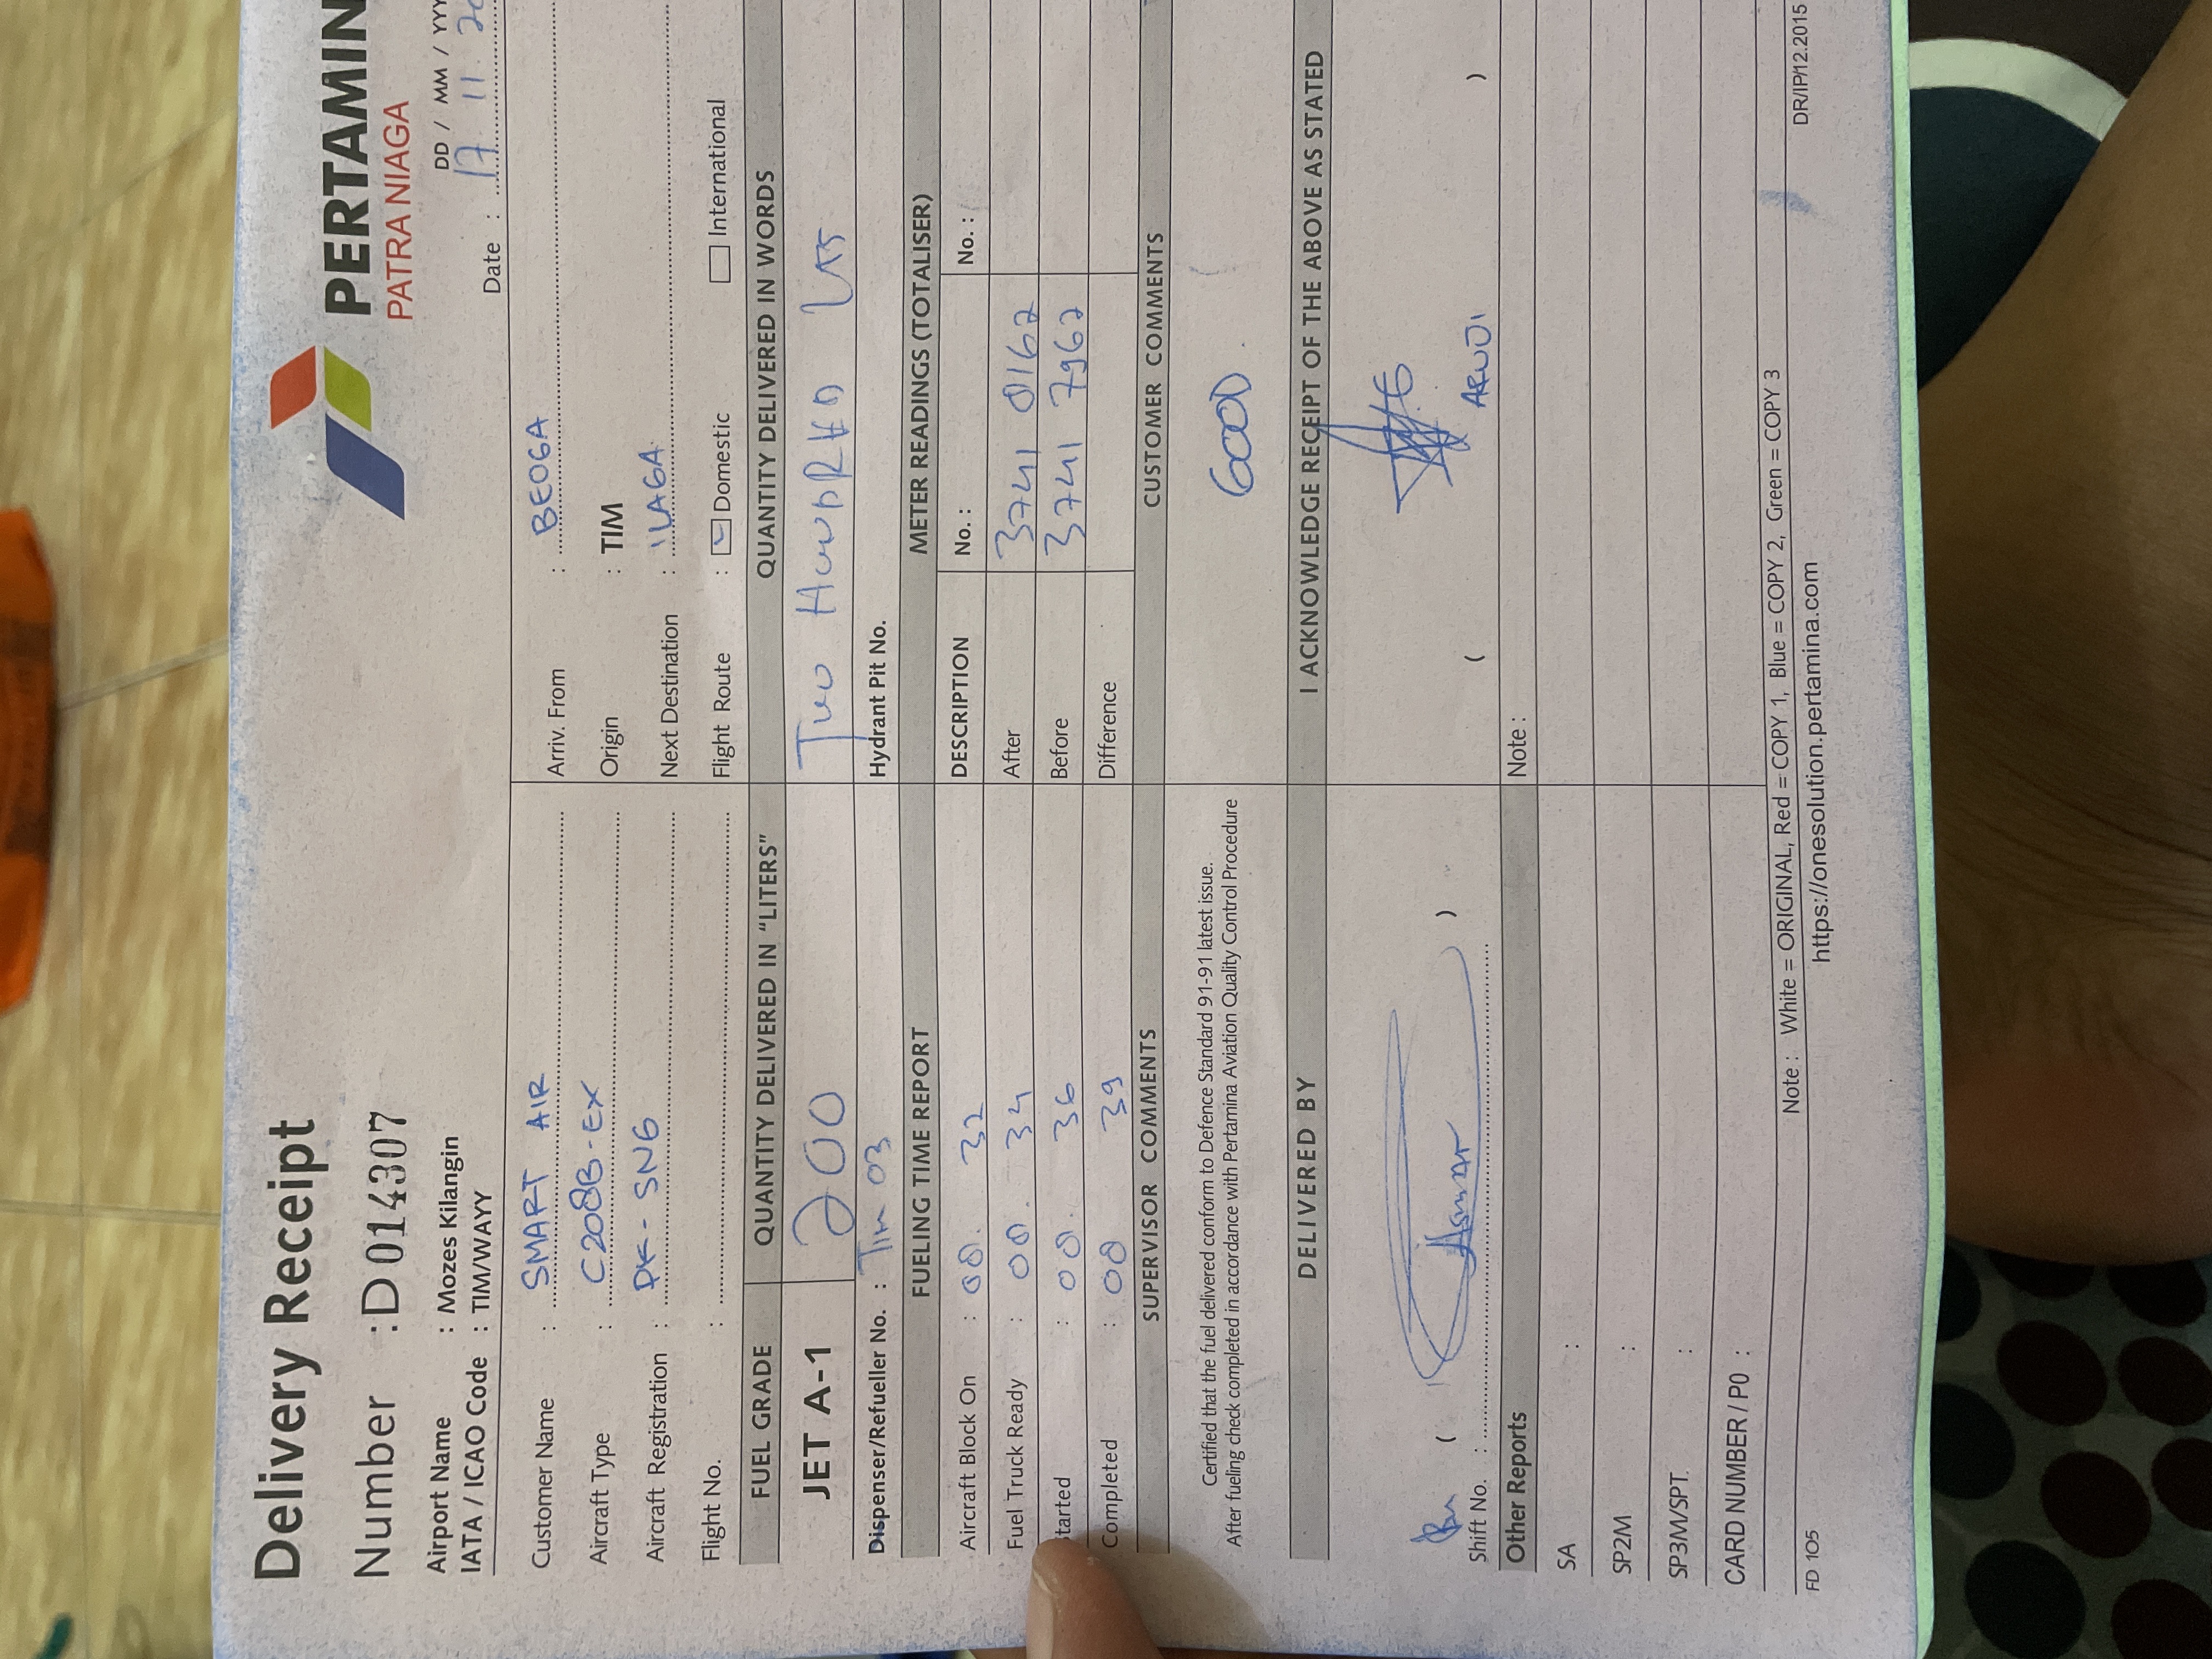 Delivery Receipt
PERTAMIN
PATRA NIAGA
Number : D 014307
DD / MM / YYY
Date : 17 11 20
Airport Name : Mozes Kilangin
IATA / ICAO Code : TIM/WAYY
Customer Name : SMART AIR
Arriv. From : BEOGA
Aircraft Type : C208B-EX
Origin : TIM
Aircraft Registration : PK-SNG
Next Destination : ILAGA
Flight No. :
Flight Route : Domestic International
FUEL GRADE QUANTITY DELIVERED IN "LITERS" QUANTITY DELIVERED IN WORDS
JET A-1 200 Two HUNDRED LTS
Dispenser/Refueller No. : Tim 03 Hydrant Pit No.
FUELING TIME REPORT METER READINGS (TOTALISER)
DESCRIPTION No. : No. :
Aircraft Block On : 08. 32
Fuel Truck Ready : 08. 34 After 3741 8162
tarted : 08. 36 Before 3741 7962
Completed : 08 39 Difference
SUPERVISOR COMMENTS CUSTOMER COMMENTS
Certified that the fuel delivered conform to Defence Standard 91-91 latest issue.
After fueling check completed in accordance with Pertamina Aviation Quality Control Procedure
GOOD.
DELIVERED BY I ACKNOWLEDGE RECEIPT OF THE ABOVE AS STATED
( Asmar )
Shift No. :
( )
Other Reports Note :
SA :
SP2M :
SP3M/SPT. :
CARD NUMBER / PO :
Note : White = ORIGINAL, Red = COPY 1, Blue = COPY 2, Green = COPY 3
FD 105 https://onesolution.pertamina.com DR/IP/12.2015